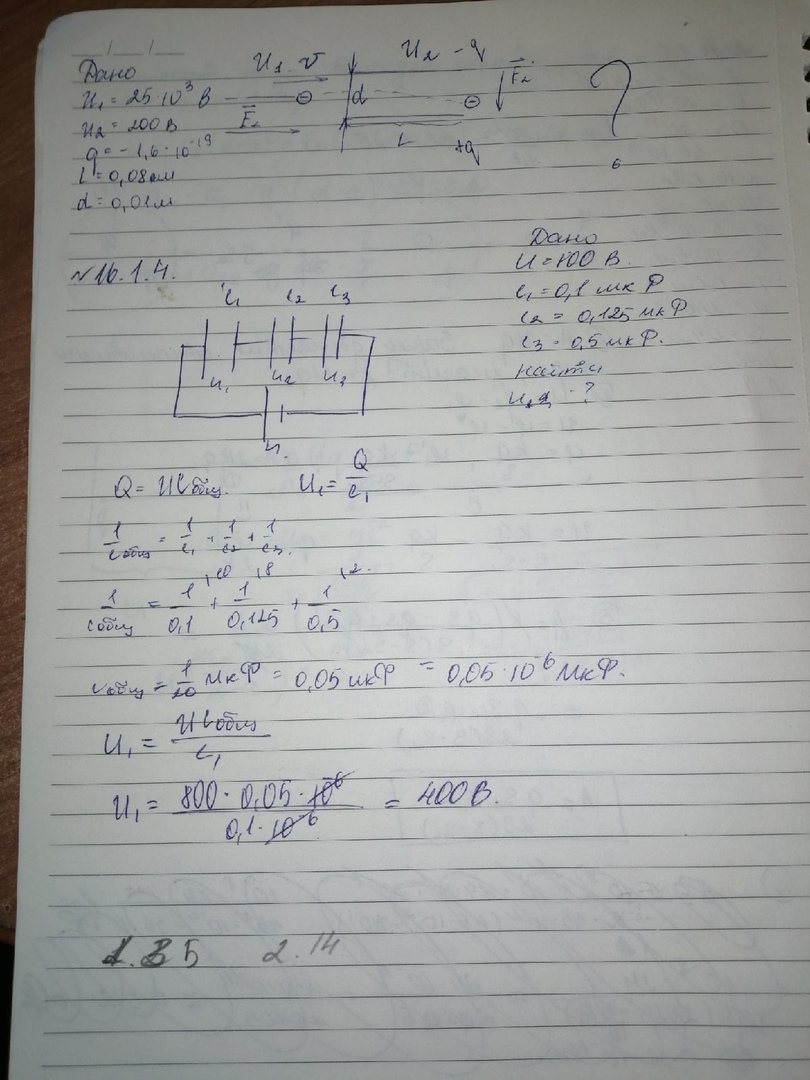 Дано
U₁ = 25·10³ В
U₂ = 200 В
q = -1,6·10⁻¹⁹
L = 0,08 м
d = 0,01 м
U₁ v
F₂
d
U₂ - q
F₂
L
+q
N 16.1.4.
C₁ C₂ C₃
U₁ U₂ U₃
U
Дано
U = 800 В.
C₁ = 0,1 мкФ
C₂ = 0,125 мкФ
C₃ = 0,5 мкФ.
найти
- ?
Q = UCобщ. U₁ = Q/C₁
1/Cобщ = 1/C₁ + 1/C₂ + 1/C₃.
1/Cобщ = 1/0,1 + 1/0,125 + 1/0,5
Cобщ = 1/20 мкФ = 0,05 мкФ = 0,05·10⁻⁶ мкФ.
U₁ = UCобщ/C₁
U₁ = 800·0,05·10⁻⁶/0,1·10⁻⁶ = 400 В.
5 2.14